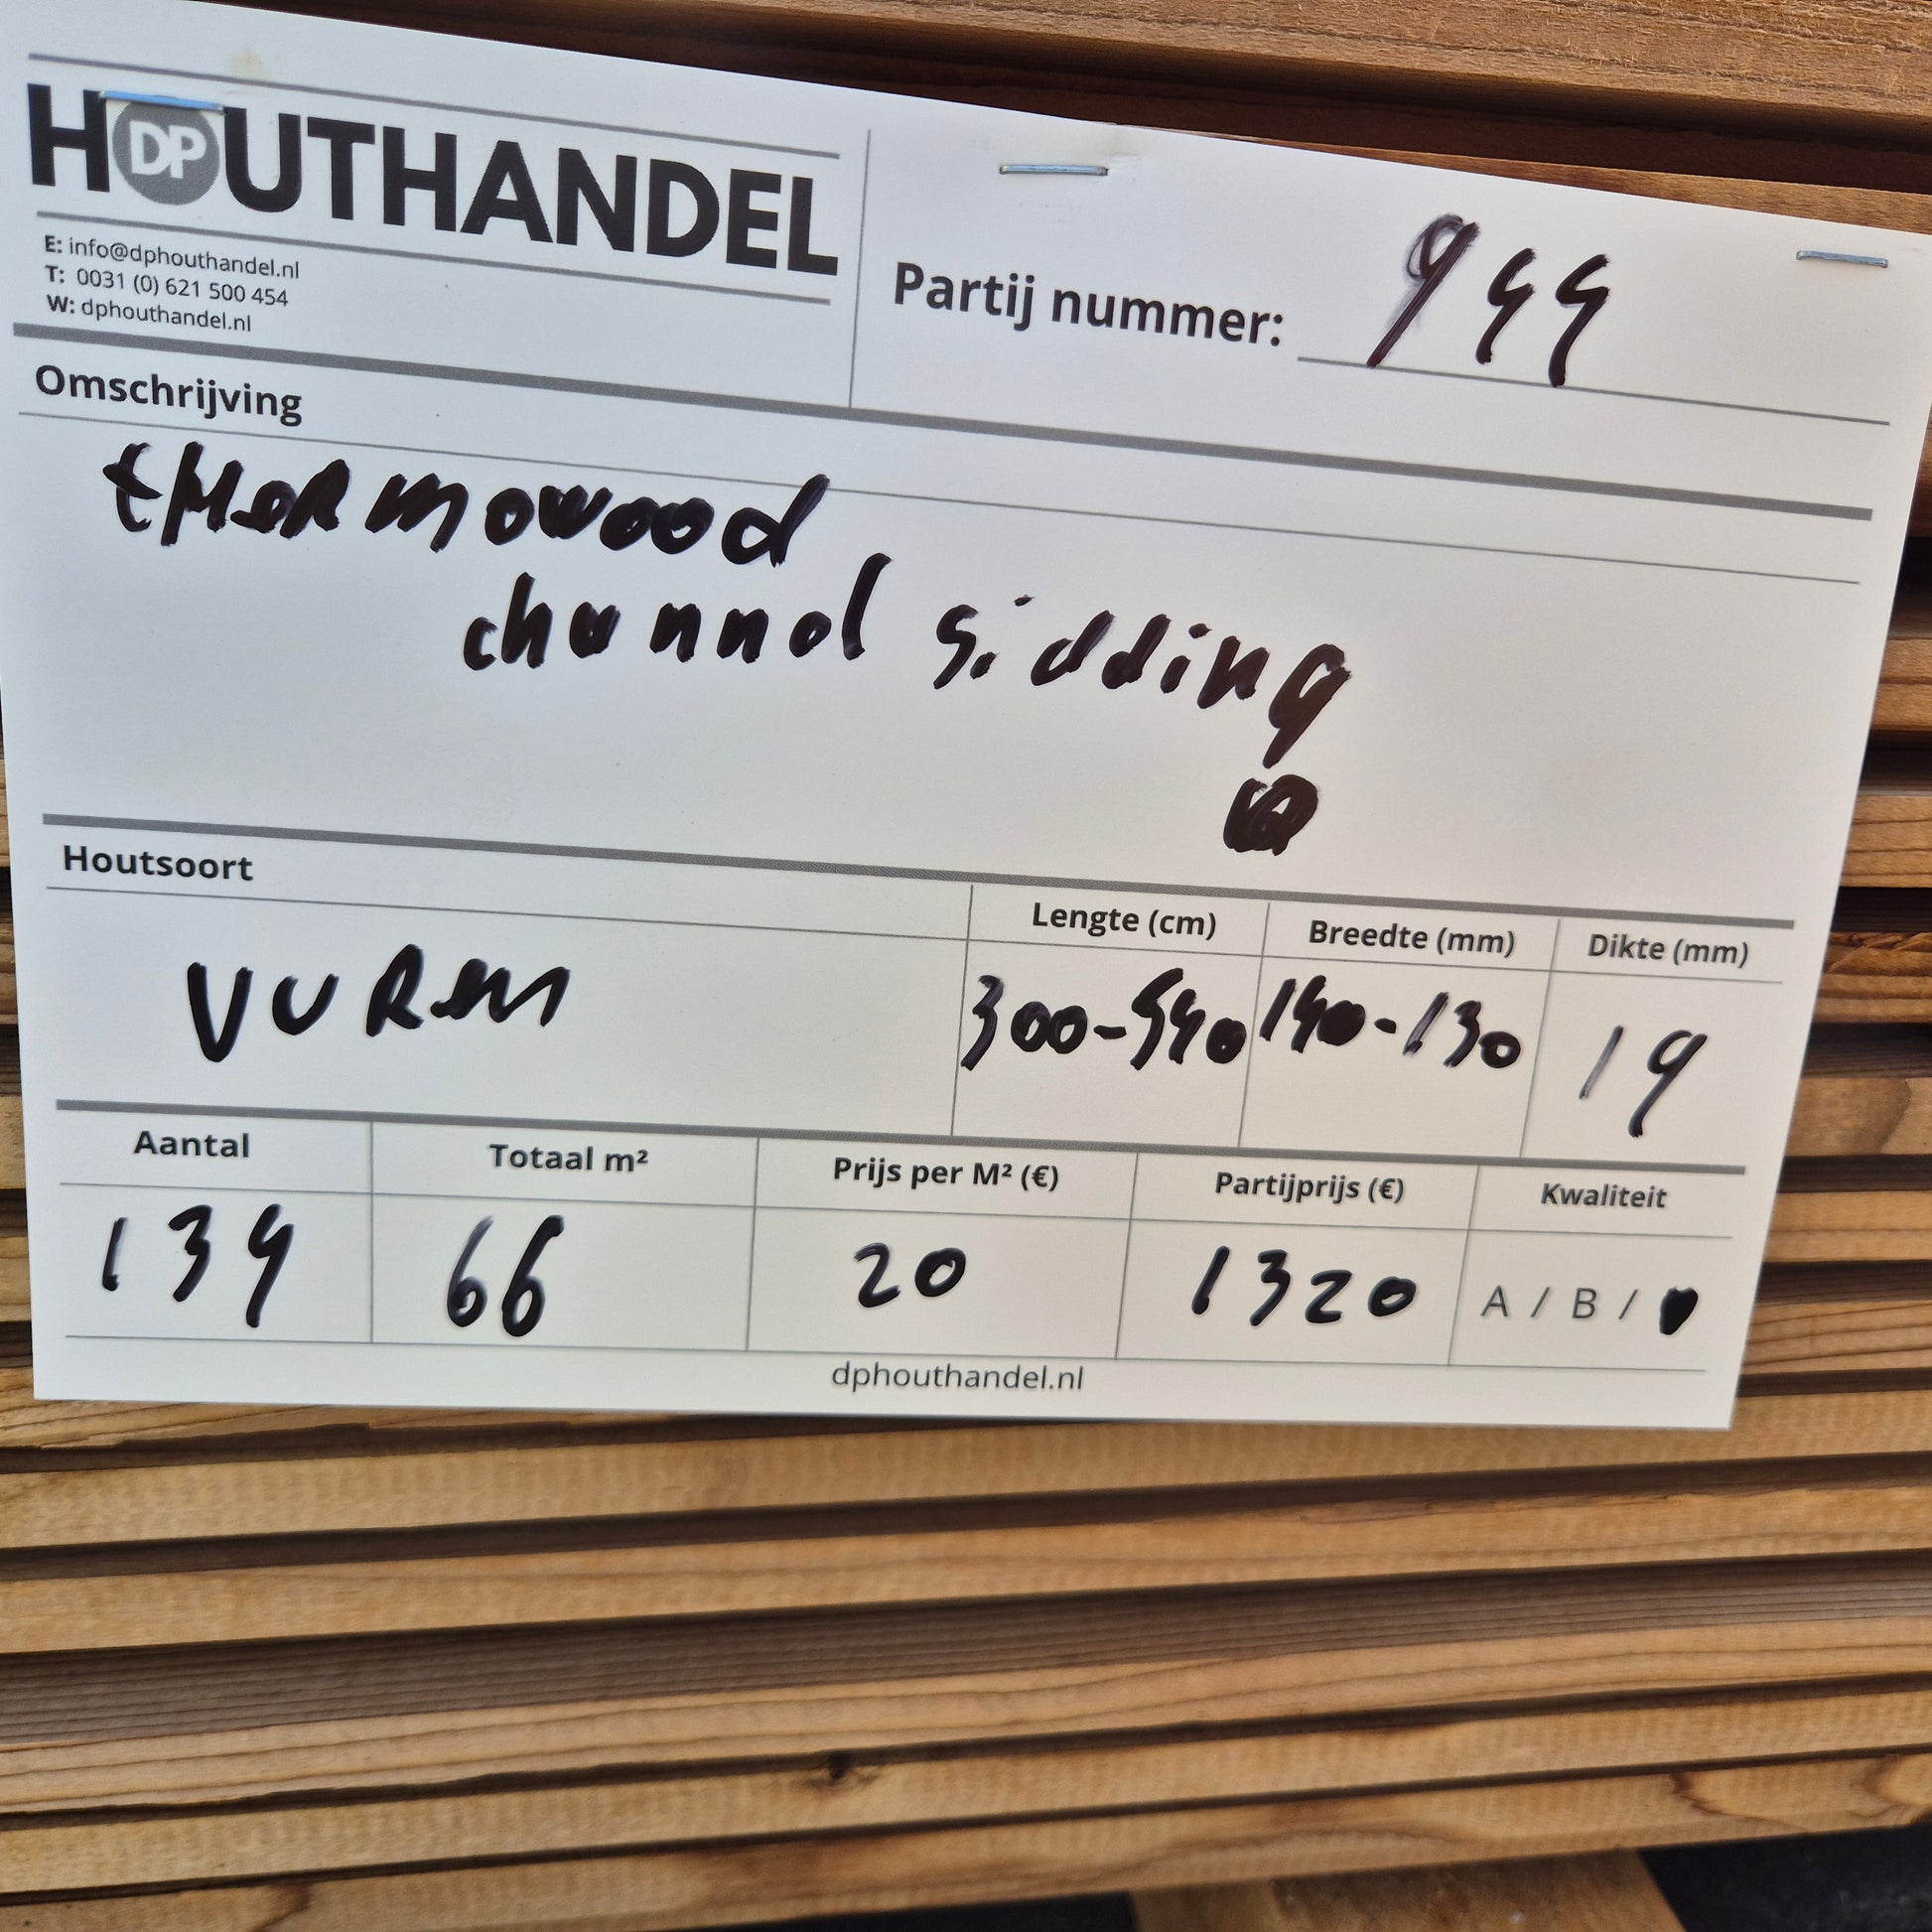 HOUTHANDEL
DP
E: info@dphouthandel.nl
T: 0031 (0) 621 500 454
W: dphouthandel.nl
Partij nummer: 944
Omschrijving
thermowood
channel sidding
Houtsoort
Lengte (cm) Breedte (mm) Dikte (mm)
vuren 300-540 140-130 19
Aantal Totaal m² Prijs per M² (€) Partijprijs (€) Kwaliteit
139 66 20 1320 A / B /
dphouthandel.nl